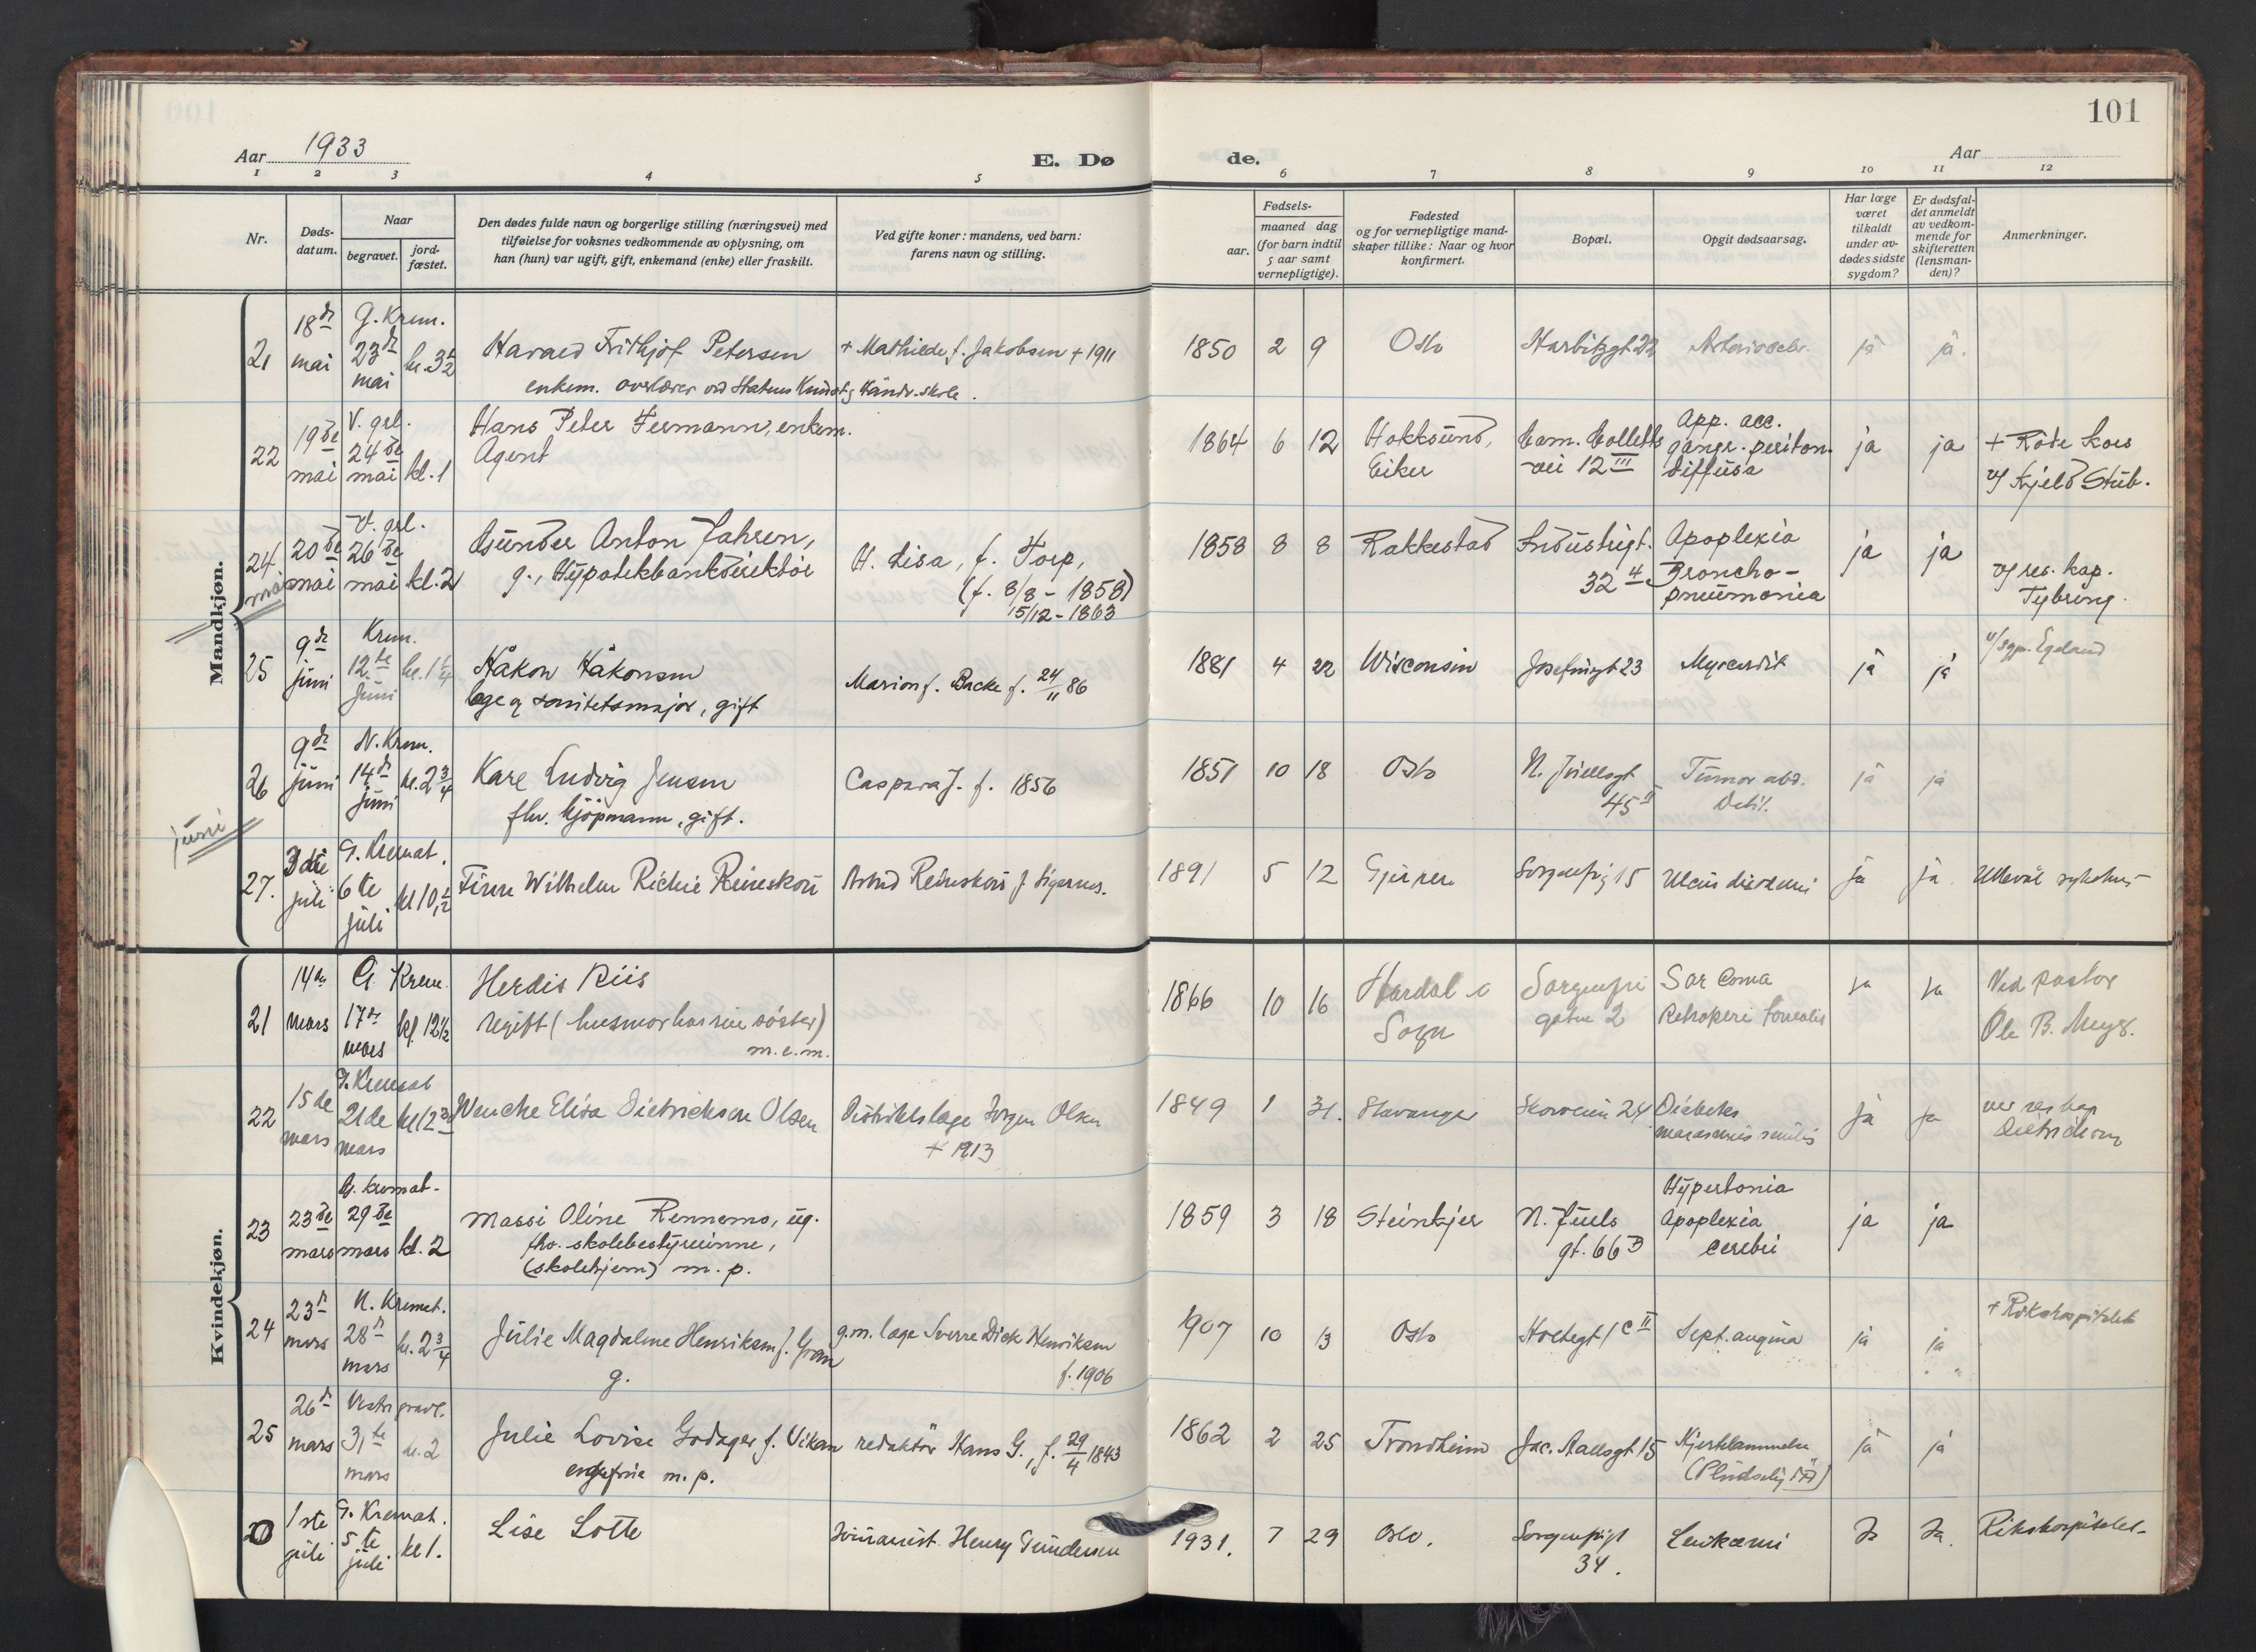 101
Aar 1933
E. Dø
de.
Aar
1 2 3 4 5 6 7 8 9 10 11 12
Nr.
Døds-
datum.
Naar
begravet.
jord-
fæstet.
Den dødes fulde navn og borgerlige stilling (næringsvei) med
tilføielse for voksnes vedkommende av oplysning, om
han (hun) var ugift, gift, enkemand (enke) eller fraskilt.
Ved gifte koner: mandens, ved barn:
farens navn og stilling.
Fødsels-
aar.
maaned dag
(for barn indtil
5 aar samt
vernepligtige).
Fødested
og for vernepligtige mand-
skaper tillike: Naar og hvor
konfirmert.
Bopæl.
Opgit dødsaarsag.
Har læge
været
tilkaldt
under av-
dødes sidste
sygdom?
Er dødsfal-
det anmeldt
av vedkom-
mende for
skifteretten
(lensman-
den)?
Anmerkninger.
Mandkjøn.
21
18de
mai
G. Krem.
23de
mai
kl. 3 1/2
Harald Frithjof Petersen
enkem. overlærer ved Statens Kunst og Håndv. skole.
+ Mathilde f. Jakobsen + 1911
1850 2 9 Oslo
Harbitzgt 22
Arteriosclr.
ja ja.
22
19de
mai
V. grl.
24de
mai
kl. 1
Hans Peter Hermann, enkem.
Agent
1864 6 12
Hokksund,
Eiker
Cam. Colletts
vei 12 III
App. acc.
gangr. periton.
diffusa
ja ja
+ Røde Kors
v/ Kjeld Stub.
24
mai
20de
mai
V. grl.
26de
mai
kl. 2
Gunder Anton Jahren,
g., Hypotekbankdirektør
H. Lisa, f. Torp,
(f. 8/8 - 1858)
15/12 - 1863
1858 8 8 Rakkestad
Industrigt.
32 4
Apoplexia
Broncho-
pneumonia
ja ja
v/ res. kap.
Tybring.
25
9de
juni
Krem.
12te
juni
kl. 1 1/4
Håkon Håkonsen
læge og sanitetsmajor, gift
Marion f. Backe f. 24/11 86
1881 4 22 Wisconsin
Josefinegt 23
Myocardit
ja ja
v/ sgpr. Egeland
26
juni
9de
juni
N. Krem.
14de
juni
kl. 2 3/4
Karl Ludvig Jensen
fhv. kjøpmann, gift.
Caspara J. f. 1856
1851 10 18 Oslo
N. Juelsgt
45 II
Tumor abd.
Debil.
ja ja
27.
3die
juli
G. Kremat.
6te
juli
kl 10 1/2
Finn Wilhelm Richie Reineskou
Astrid Reineskou f Sigernes.
1891 5 12 Gjerpen
Sorgenfrig 15
Ulcus duodeni
ja ja.
Ullevål sykehus
Kvindekjøn.
21
14de
mars
G. Krem.
17de
mars
kl. 12 1/2
Herdis Riis
Ugift (husmor hos sin søster)
m.e.m.
1866 10 16
Hardal i
Sogn
Sorgenfri
gaten 2
Sarcoma
Retroperitonealis
ja ja
Ved pastor
Ole B. Meyer.
22
15de
mars
G. Kremat
21de
mars
Wenche Elisa Dietrichson Olsen
Distriktslæge Jørgen Olsen
+ 1913
1849 1 31. Stavanger
Skovveien 24
Diabetes
marasmus senilis
ja ja
ved res kap
Dietrichson
23
23de
mars
G. kremat.
29de
mars
kl. 2
Massi Oline Rennemo, ug.
fhv. skolebestyrerinne,
(skolehjem) m. p.
1859 3 18 Steinkjer
N. Juels
gt. 66 B
Hypertonia
Apoplexia
cerebri
ja ja
24
23de
mars
N. Kremat.
28de
mars
kl. 2 3/4
Julie Magdalene Henriksen f. Gran
g.
g.m. læge Sverre Dick Henriksen
f. 1906
1907 10 13 Oslo
Holtegt 1 C II
Sept. angina
ja ja
+ Rikshospitalet
25
26de
mars
Vestre gravl.
31te
mars
kl. 2
Julie Lovise Godager f. Vikan
enkefrue m. p.
redaktør Hans G., f. 29/4 1843
1862 2 25 Trondheim
Jac. Aallsgt 15
Hjertelammelse
(Pludselig død)
ja ja
1ste
juli
G. Kremat.
5te
juli
kl 1.
Lise Lotte
Henry Gundersen
1931. 7 29 Oslo.
Sorgenfrigt
34.
Leukæmi
Ja Ja.
Rikshospitalet